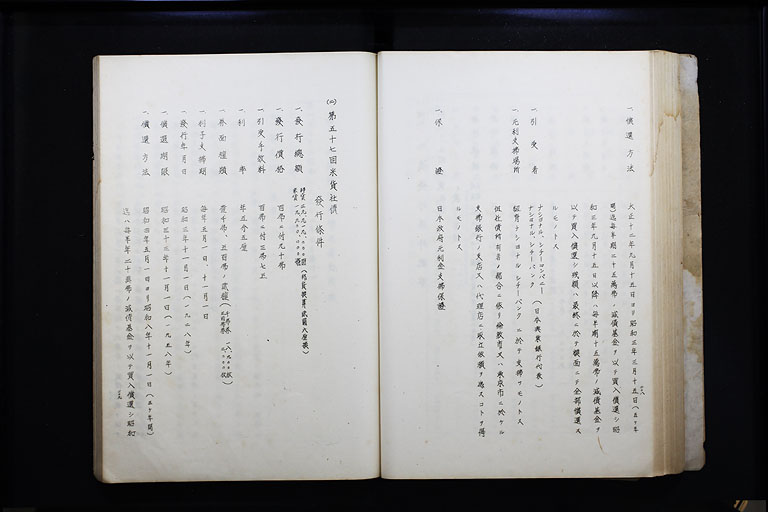 一、償還方法 大正十二年九月十五日ヨリ昭和三年三月十五日(五ヶ年
間)迄毎半期二十五萬弗ノ減債基金ヲ以テ買入償還シ昭
和三年九月十五日以降ハ毎半期十五萬弗ノ減債基金ヲ
以テ買入償還シ残額ハ最終ニ於テ額面ニテ全部償還ス
ルモノトス
一、引受者 ナショナル、シチーコンパニー
ナショナル、シチーバンク (日本興業銀行代表)
一、元利支拂場所 紐育ナショナルシチーバンクニ於テ支拂フモノトス
但社債所有者ノ都合ニ依リ倫敦市又ハ東京市ニ於ケル
支拂銀行ノ支店又ハ代理店ニ取立依頼ヲ為スコトヲ得
ルモノトス
一、保證 日本政府元利金支拂保證
(二)第五十七回米貨社債
發行條件
一、發行總額
米貨一九、九〇〇、〇〇〇弗
一、發行價格 百弗ニ付九十弗
一、引受手數料 百弗ニ付三弗七五
一、利率 年五分五厘
一、券面種類 壹千弗、五百弗ノ貳種
一、利子支拂期 毎年五月一日、十一月一日
一、發行年月日 昭和三年十一月一日(一九二八年)
一、償還期限 昭和三十三年十一月一日(一九五八年)
一、償還方法 昭和四年五月一日ヨリ昭和八年十一月一日(五ヶ年間)
迄ハ毎半年二十五萬弗ノ減債基金ヲ以テ買入償還シ昭和